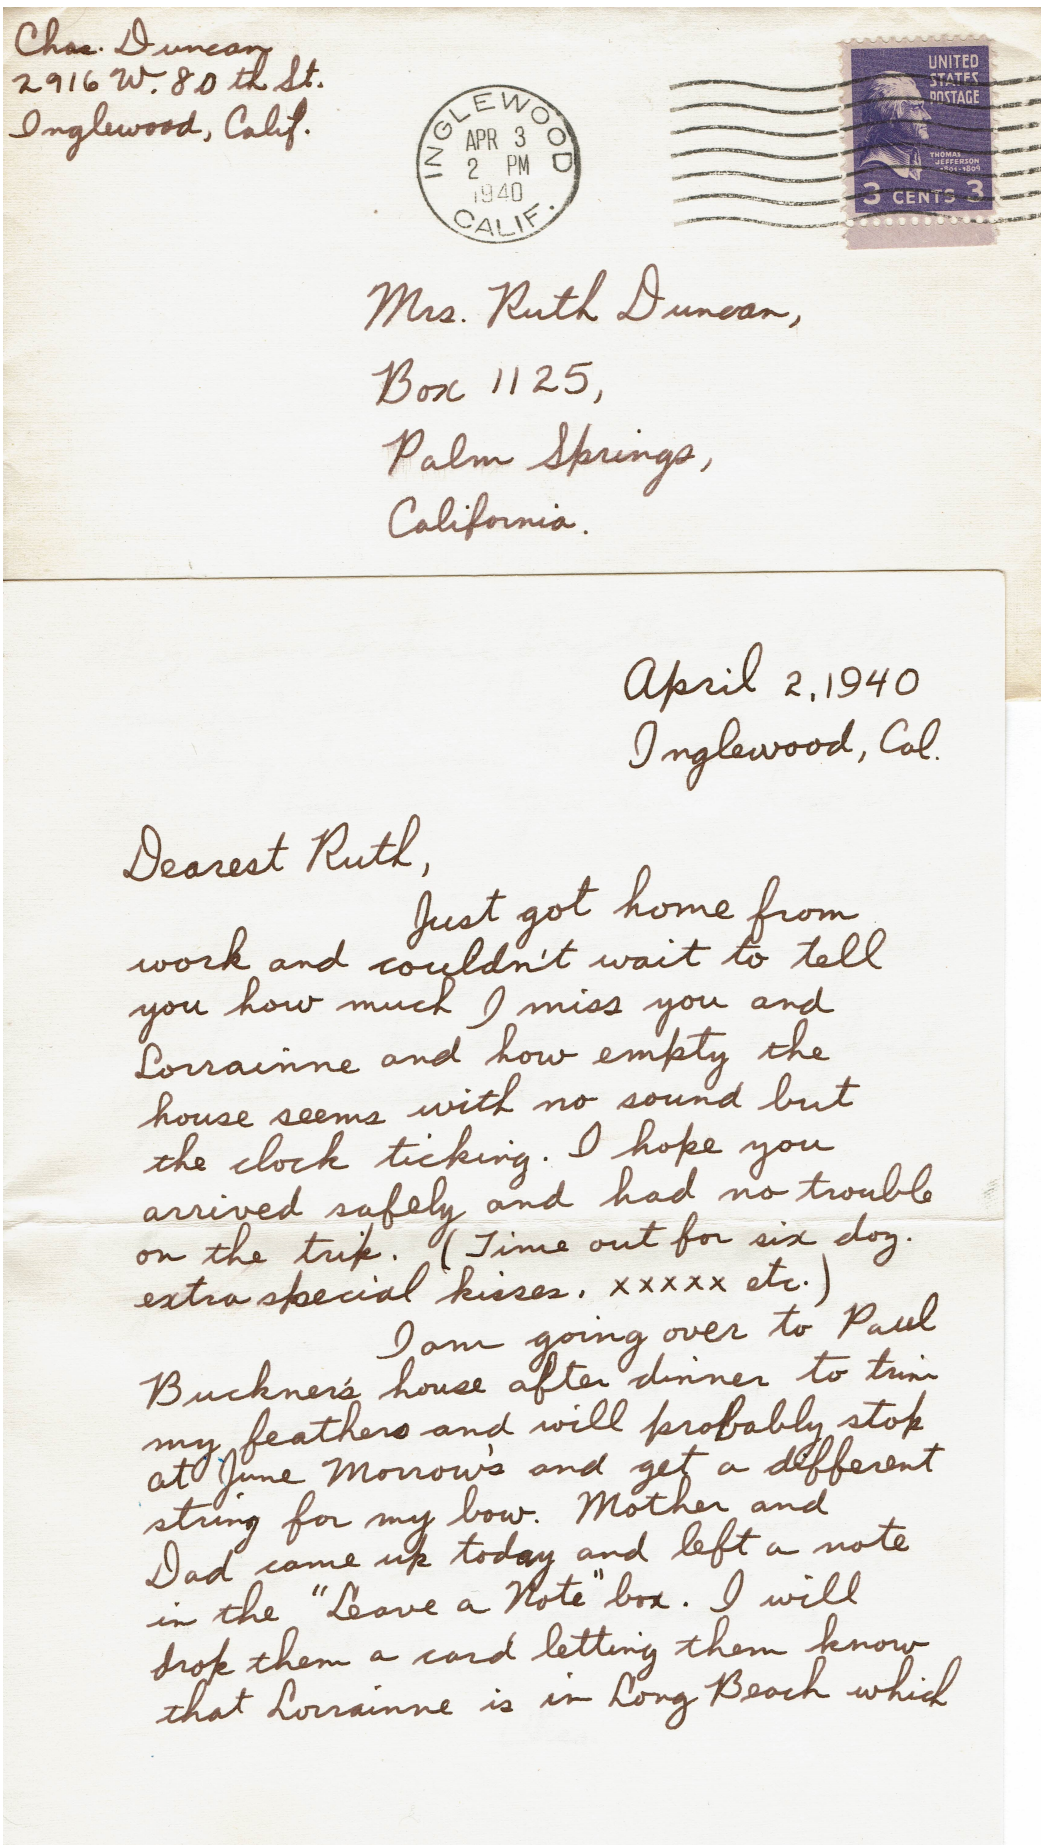 Chas. Duncan
2916 W. 80th St.
Inglewood, Calif.
INGLEWOOD
APR 3
2 PM
1940
CALIF.
UNITED
STATES
POSTAGE
THOMAS
JEFFERSON
1801-1809
3 CENTS 3
Mrs. Ruth Duncan,
Box 1125,
Palm Springs,
California.
April 2, 1940
Inglewood, Cal.
Dearest Ruth,
Just got home from
work and couldn't wait to tell
you how much I miss you and
Lorrainne and how empty the
house seems with no sound but
the clock ticking. I hope you
arrived safely and had no trouble
on the trip. (Time out for six doz.
extra special kisses. xxxxx etc.)
I am going over to Paul
Buckner's house after dinner to trim
my feathers and will probably stop
at June Morrow's and get a different
string for my bow. Mother and
Dad came up today and left a note
in the "Leave a Note" box. I will
drop them a card letting them know
that Lorrainne is in Long Beach which